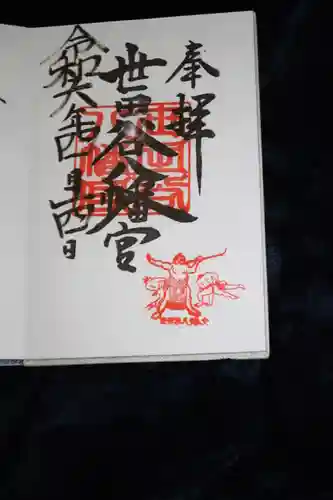 奉拝
世田谷八幡宮
令和六年四月十四日